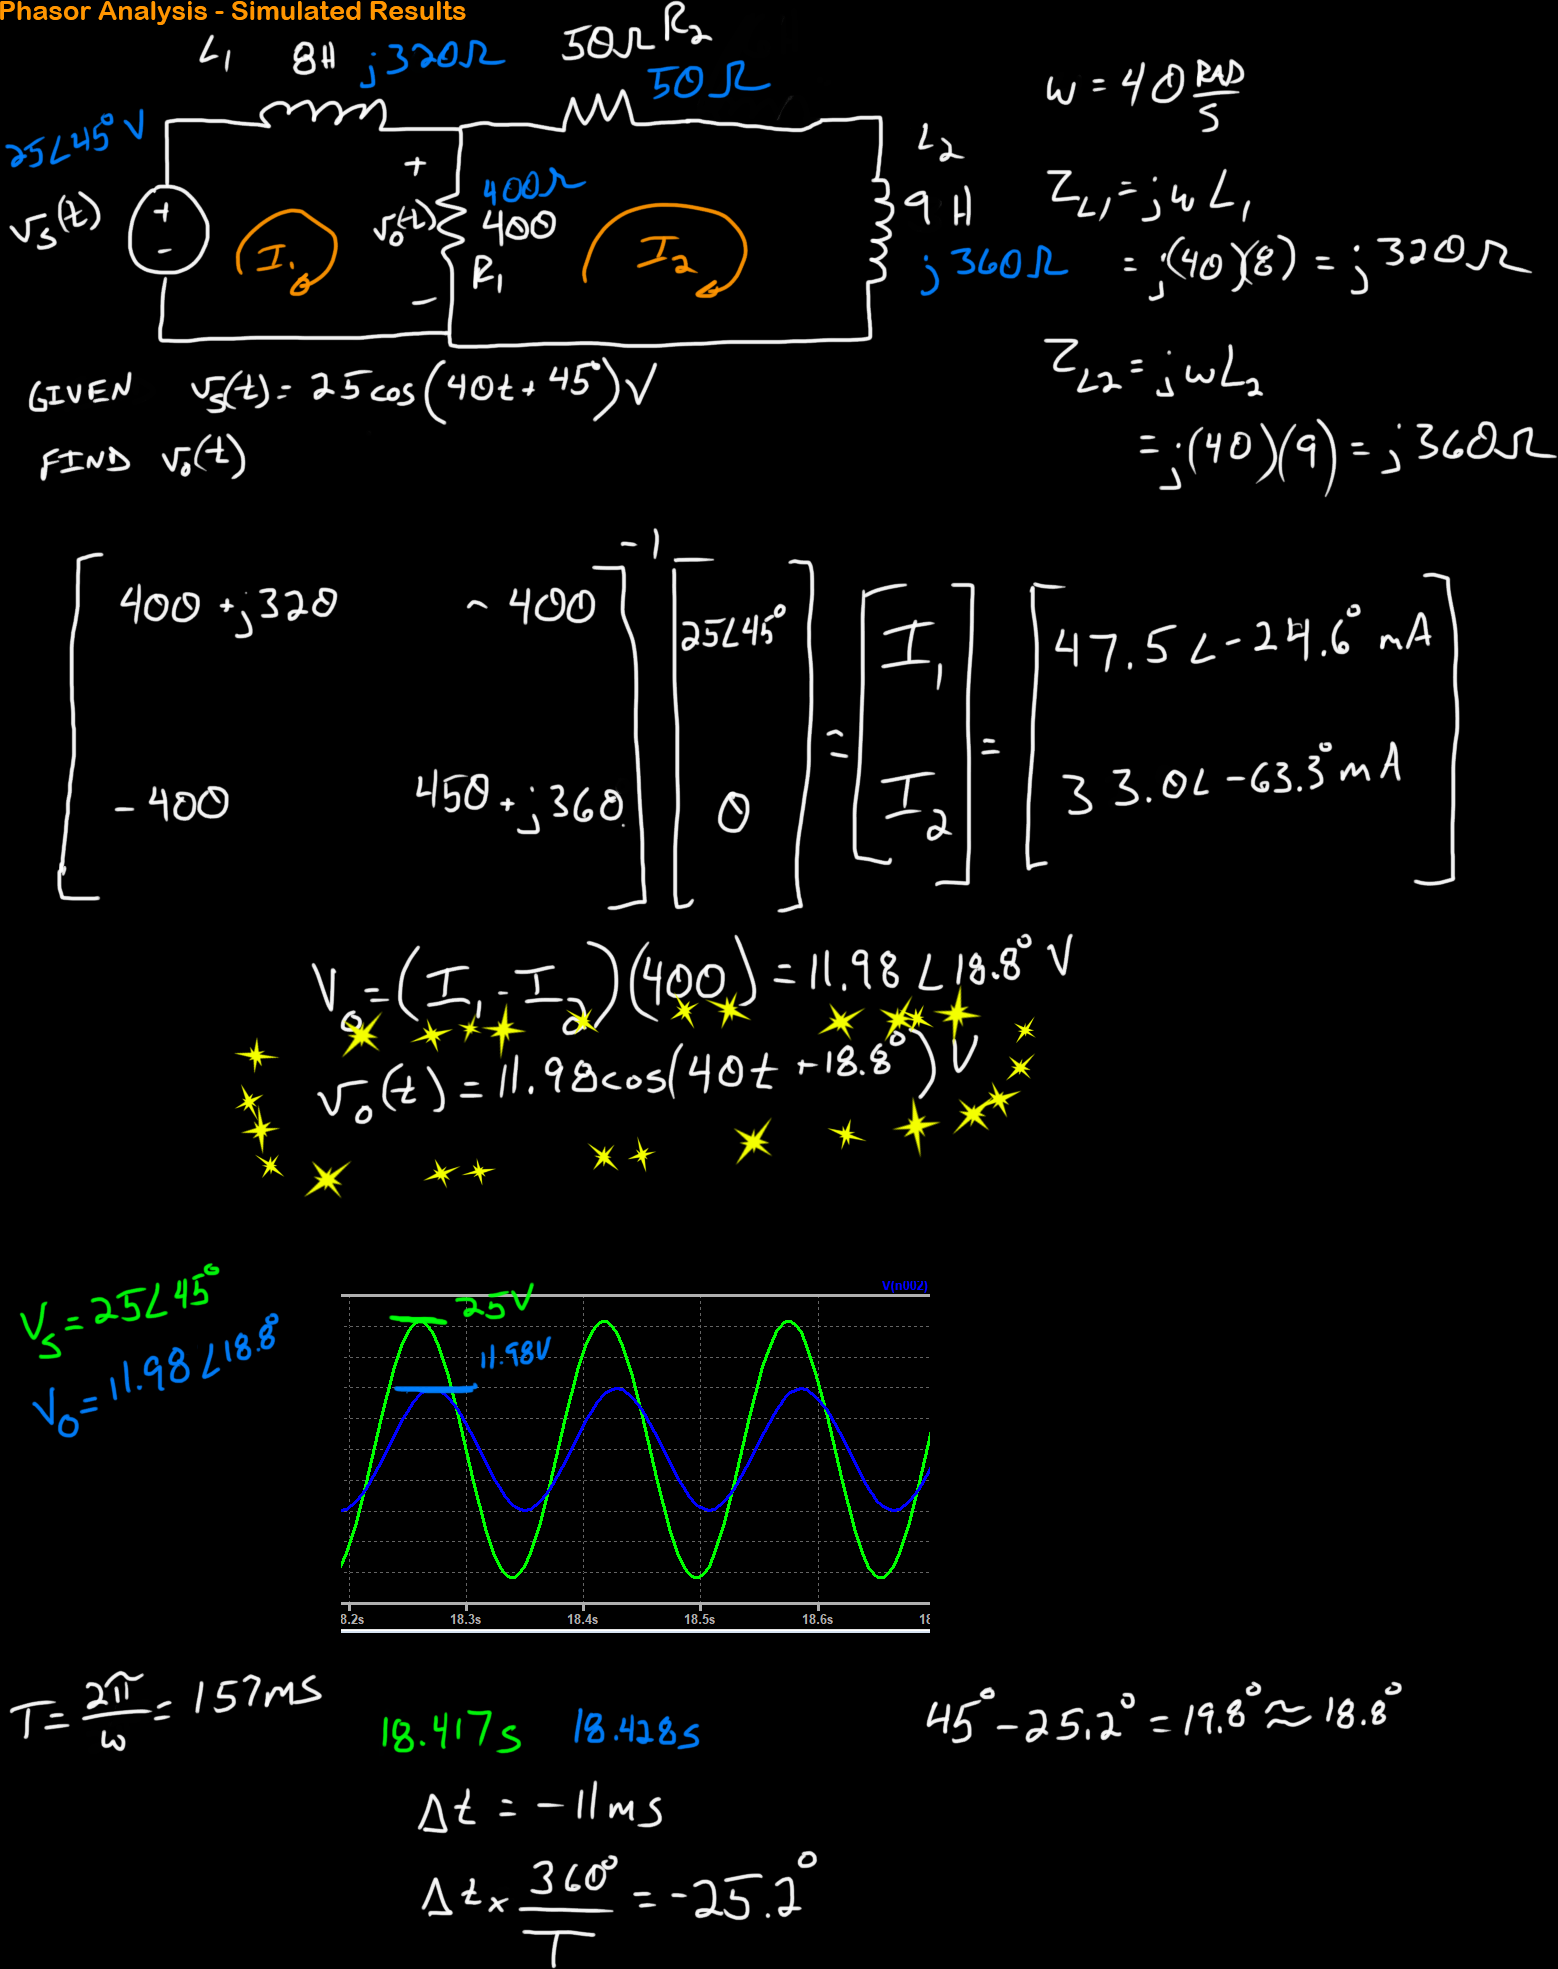 Phasor Analysis - Simulated Results
L₁ 8H j320Ω 50Ω R₂
50Ω
25∠45° V
vₛ(t)
+
-
I₁
+
v₀(t)
-
400Ω
400
R₁
I₂
L₂
9 H
j360Ω
ω = 40 RAD/S
Z_L₁ = jωL₁
= j(40)(8) = j320Ω
Z_L2 = jωL₂
= j(40)(9) = j360Ω
GIVEN vₛ(t) = 25 cos(40t + 45°) V
FIND v₀(t)
[400 + j320 - 400; - 400 450 + j360]⁻¹ [25∠45°; 0] = [I₁; I₂] = [47.5∠-24.6° mA; 33.0∠-63.3° mA]
V₀ = (I₁ - I₂)(400) = 11.98 ∠18.8° V
v₀(t) = 11.98cos(40t + 18.8°) V
Vₛ = 25∠45°
V₀ = 11.98∠18.8°
V(n002)
25V
11.98V
8.2s 18.3s 18.4s 18.5s 18.6s 18
T = 2π/ω = 157ms
18.417s 18.428s
Δt = -11ms
Δt × 360°/T = -25.2°
45° - 25.2° = 19.8° ≈ 18.8°